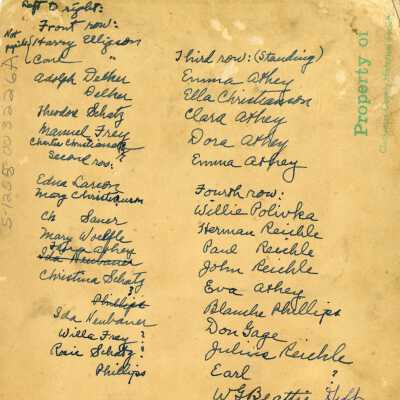 Left to right:
Front row:
Not pupils { Harry Ellijson
Cora "
Adolph Delker
Delker
Theodore Schatz
Manuel Frey
Charles Christianson ?
Second row:
Edna Larson
May Christianson
Ch Sauer
Mary Woelfle
Flora Athey
Ida Neubauer
Christina Schatz
?
Phillips
Ida Neubauer
Willa Frey ?
Rosie Schatz ?
Phillips
Third row: (Standing)
Emma Athey
Ella Christianson
Clara Athey
Dora Athey
Emma Athey
Fourth row:
Willie Polivka
Herman Reichle
Paul Reichle
John Reichle
Eva Athey
Blanche Phillips
Don Gage
Julius Reichle
Earl ?
W G Beattie
Property of